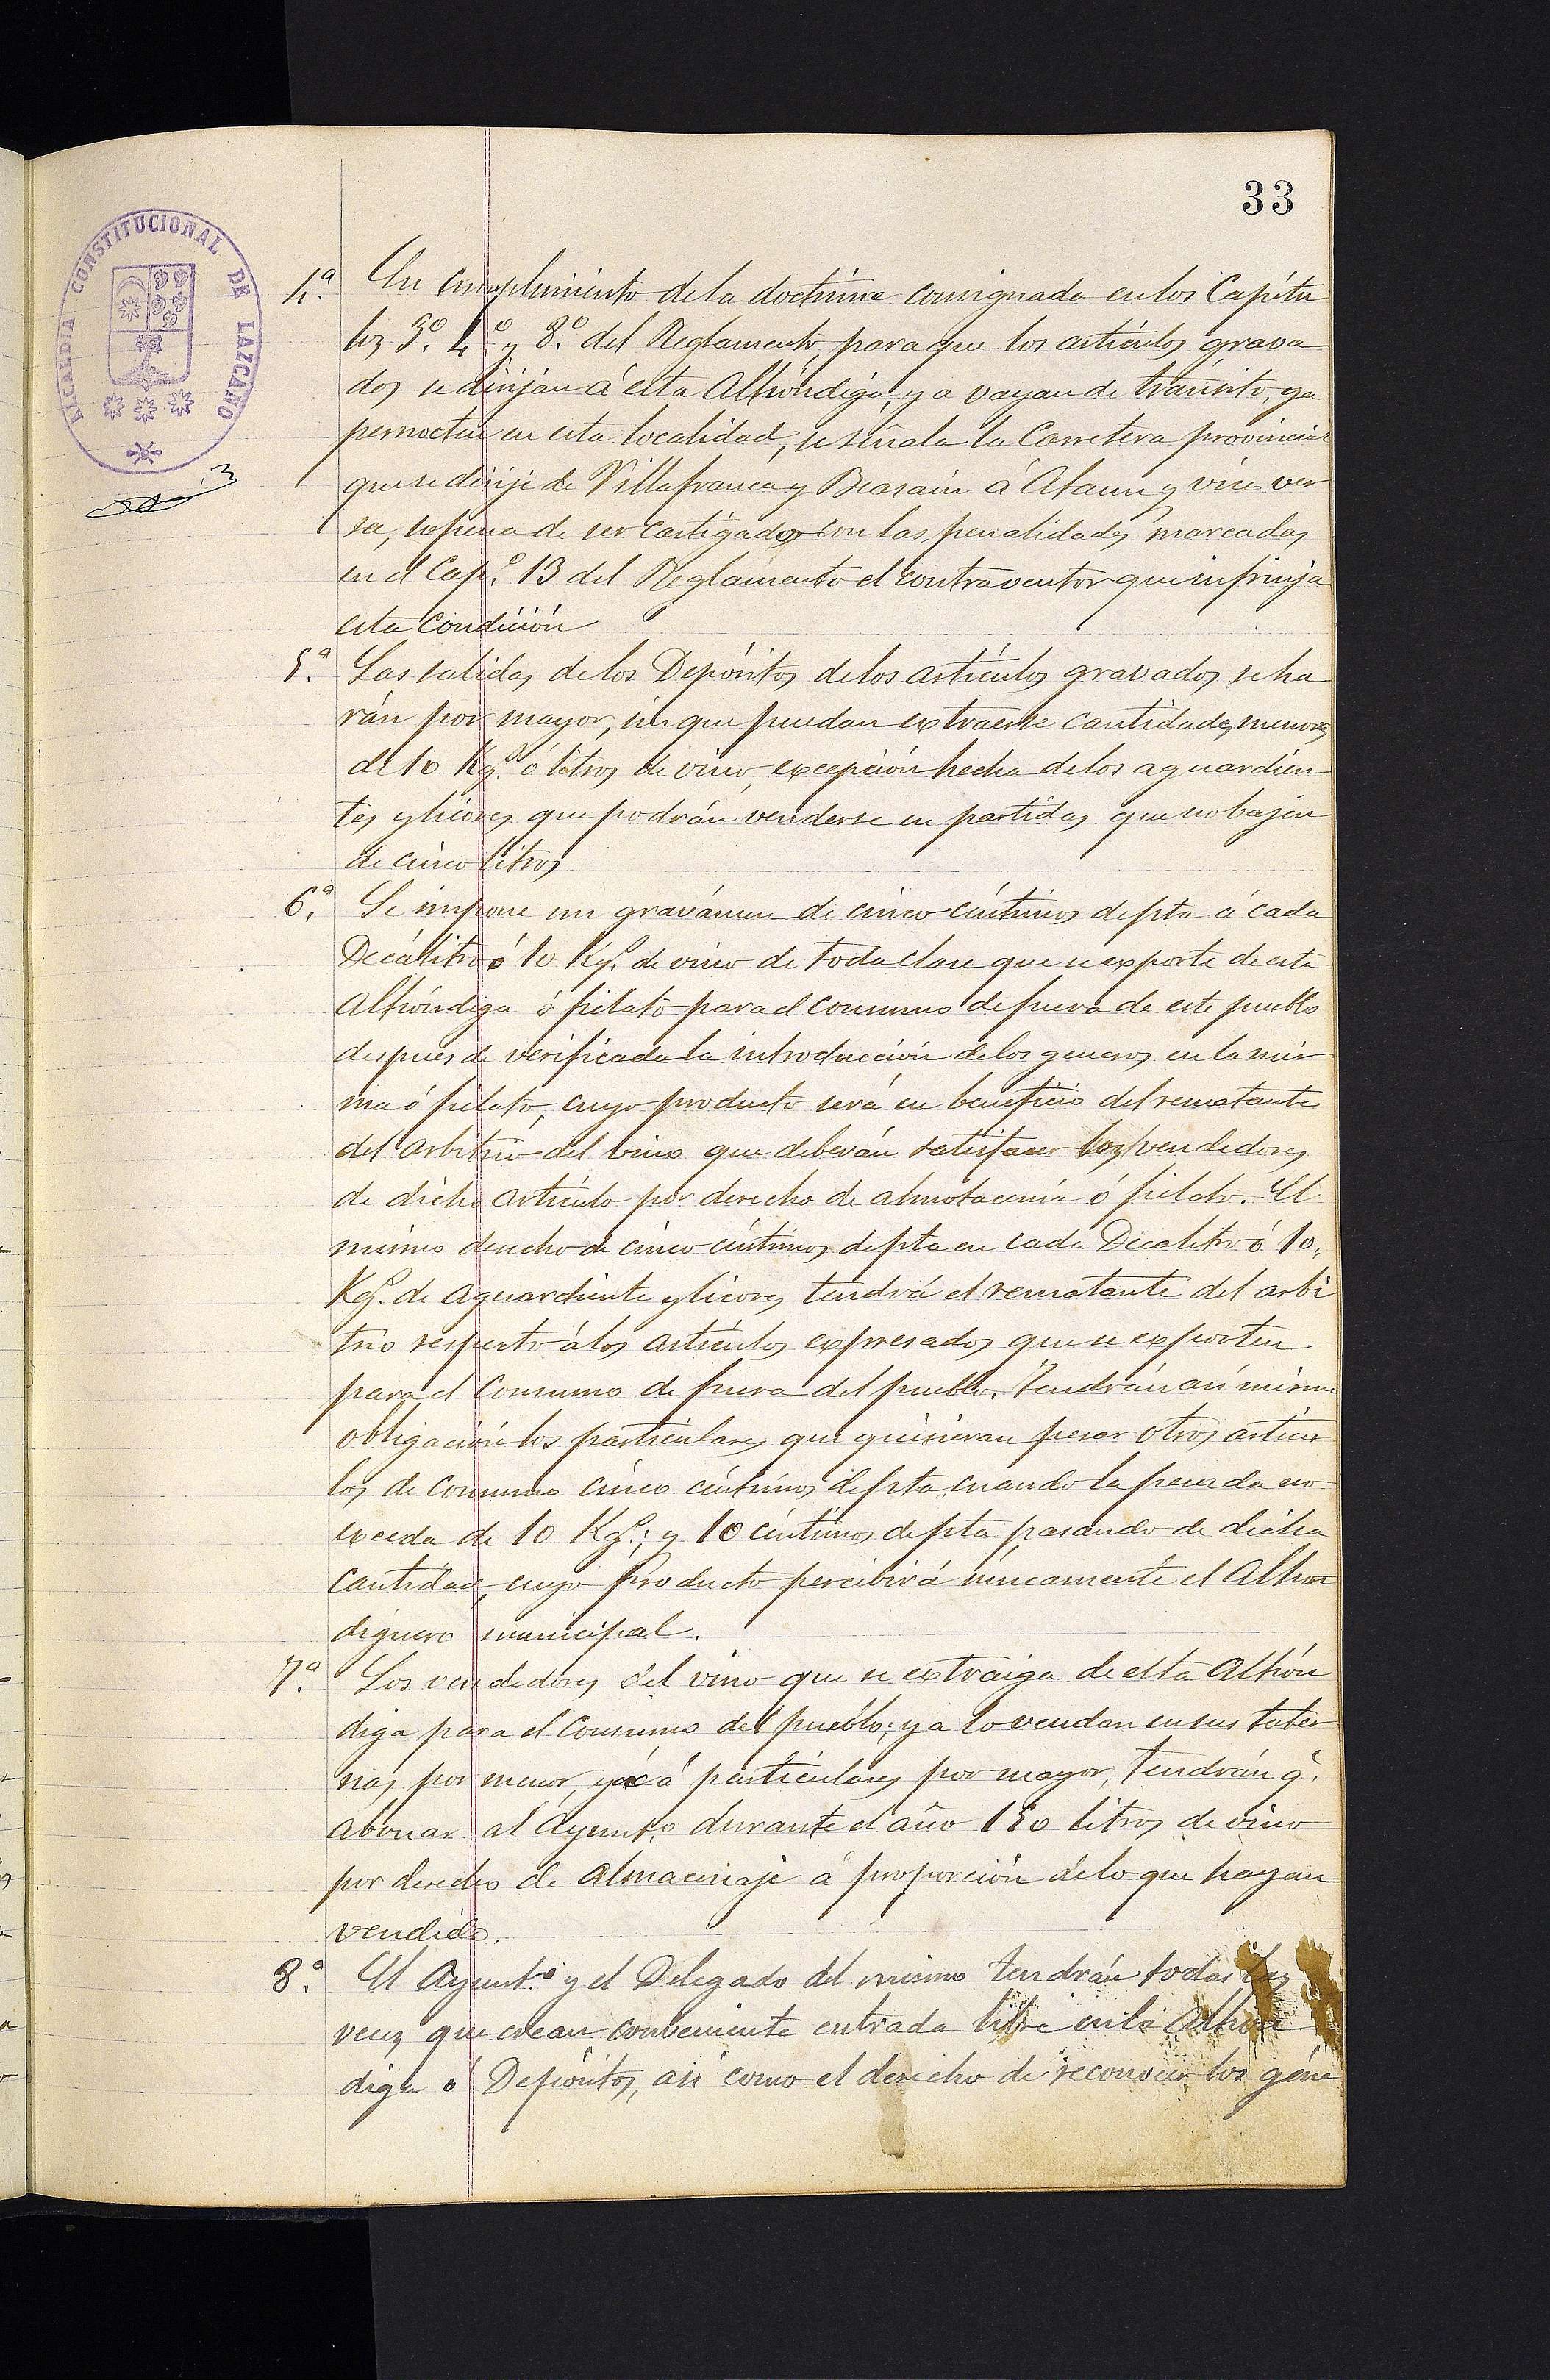 33
ALCALDIA CONSTITUCIONAL DE LAZCANO
4.ª En cumplimiento de la doctrina consignada en los Capítu
los 3.º 4.º y 8.º del Reglamento, para que los artículos grava
dos se dirijan á esta Alhóndiga, ya vayan de tránsito, ya
pernocten en esta localidad, se señala la Carretera provincial
que se dirije de Villafranca y Beasain á Ataun y vice ver
sa, sopena de ser castigados con las penalidades marcadas
en el Cap.º 13 del Reglamento el contraventor que infrinja
esta condición
5.ª Las salidas de los Depósitos de los artículos gravados se ha
rán por mayor, sin que puedan extraerse cantidades menores
de 10 Kg.s ó litros de vino, excepción hecha de los aguardien
tes y licores que podrán venderse en partidas que no bajen
de cinco litros
6.ª Se impone un gravámen de cinco céntimos de pta á cada
Decálitro ó 10 Kg.s de vino de toda clase que se exporte de esta
Alhóndiga ó fielato para el consumo de fuera de este pueblo
despues de verificada la introducción de los generos en la mis
ma ó fielato, cuyo producto será en beneficio del rematante
del arbitrio del vino que deberán satisfacer los vendedores
de dicho artículo por derecho de almotacenía ó fielato. El
mismo derecho de cinco céntimos de pta en cada Decalitro ó 10,
Kg.s de aguardiente y licores tendrá el rematante del arbi
trio respecto á los artículos expresados que se exporten
para el consumo de fuera del pueblo. Tendrán así mismo
obligación los particulares que quisieran pesar otros artícu
los de consumo cinco céntimos de pta cuando la pesada no
exceda de 10 Kg.s; y 10 céntimos de pta pasando de dicha
cantidad, cuyo producto percibirá únicamente el Alhon
diguero municipal.
7.ª Los vendedores del vino que se extraiga de esta Alhón
diga para el consumo del pueblo; ya lo vendan en sus taber
nas por menor, ya á particulares por mayor, tendrán q.e
abonar al Ayunt.o durante el año 150 litros de vino
por derecho de almacenaje á proporción de lo que hayan
vendido.
8.ª El Ayunt.o y el Delegado del mismo tendrán todas las
veces que crean conveniente entrada libre en la Alhón
diga ó Depósitos, así como el derecho de reconocer los géne